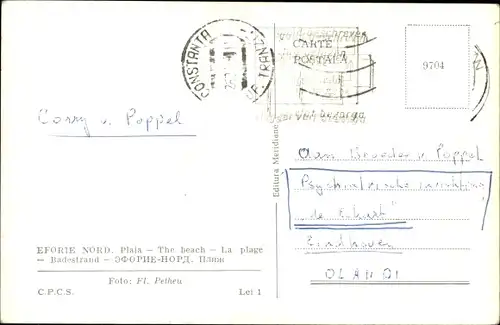 CONSTANTA
CARTE
POSTALA
9704
Corry v. Poppel
Aan Broeder v Poppel
Psychiatrische inrichting
"de Eckart"
Eindhoven
OLANDI
Editura Meridiane
EFORIE NORD. Plaja — The beach — La plage
— Badestrand — ЭФОРИЕ-НОРД. Пляж
Foto: Fl. Petheu
C.P.C.S. Lei 1